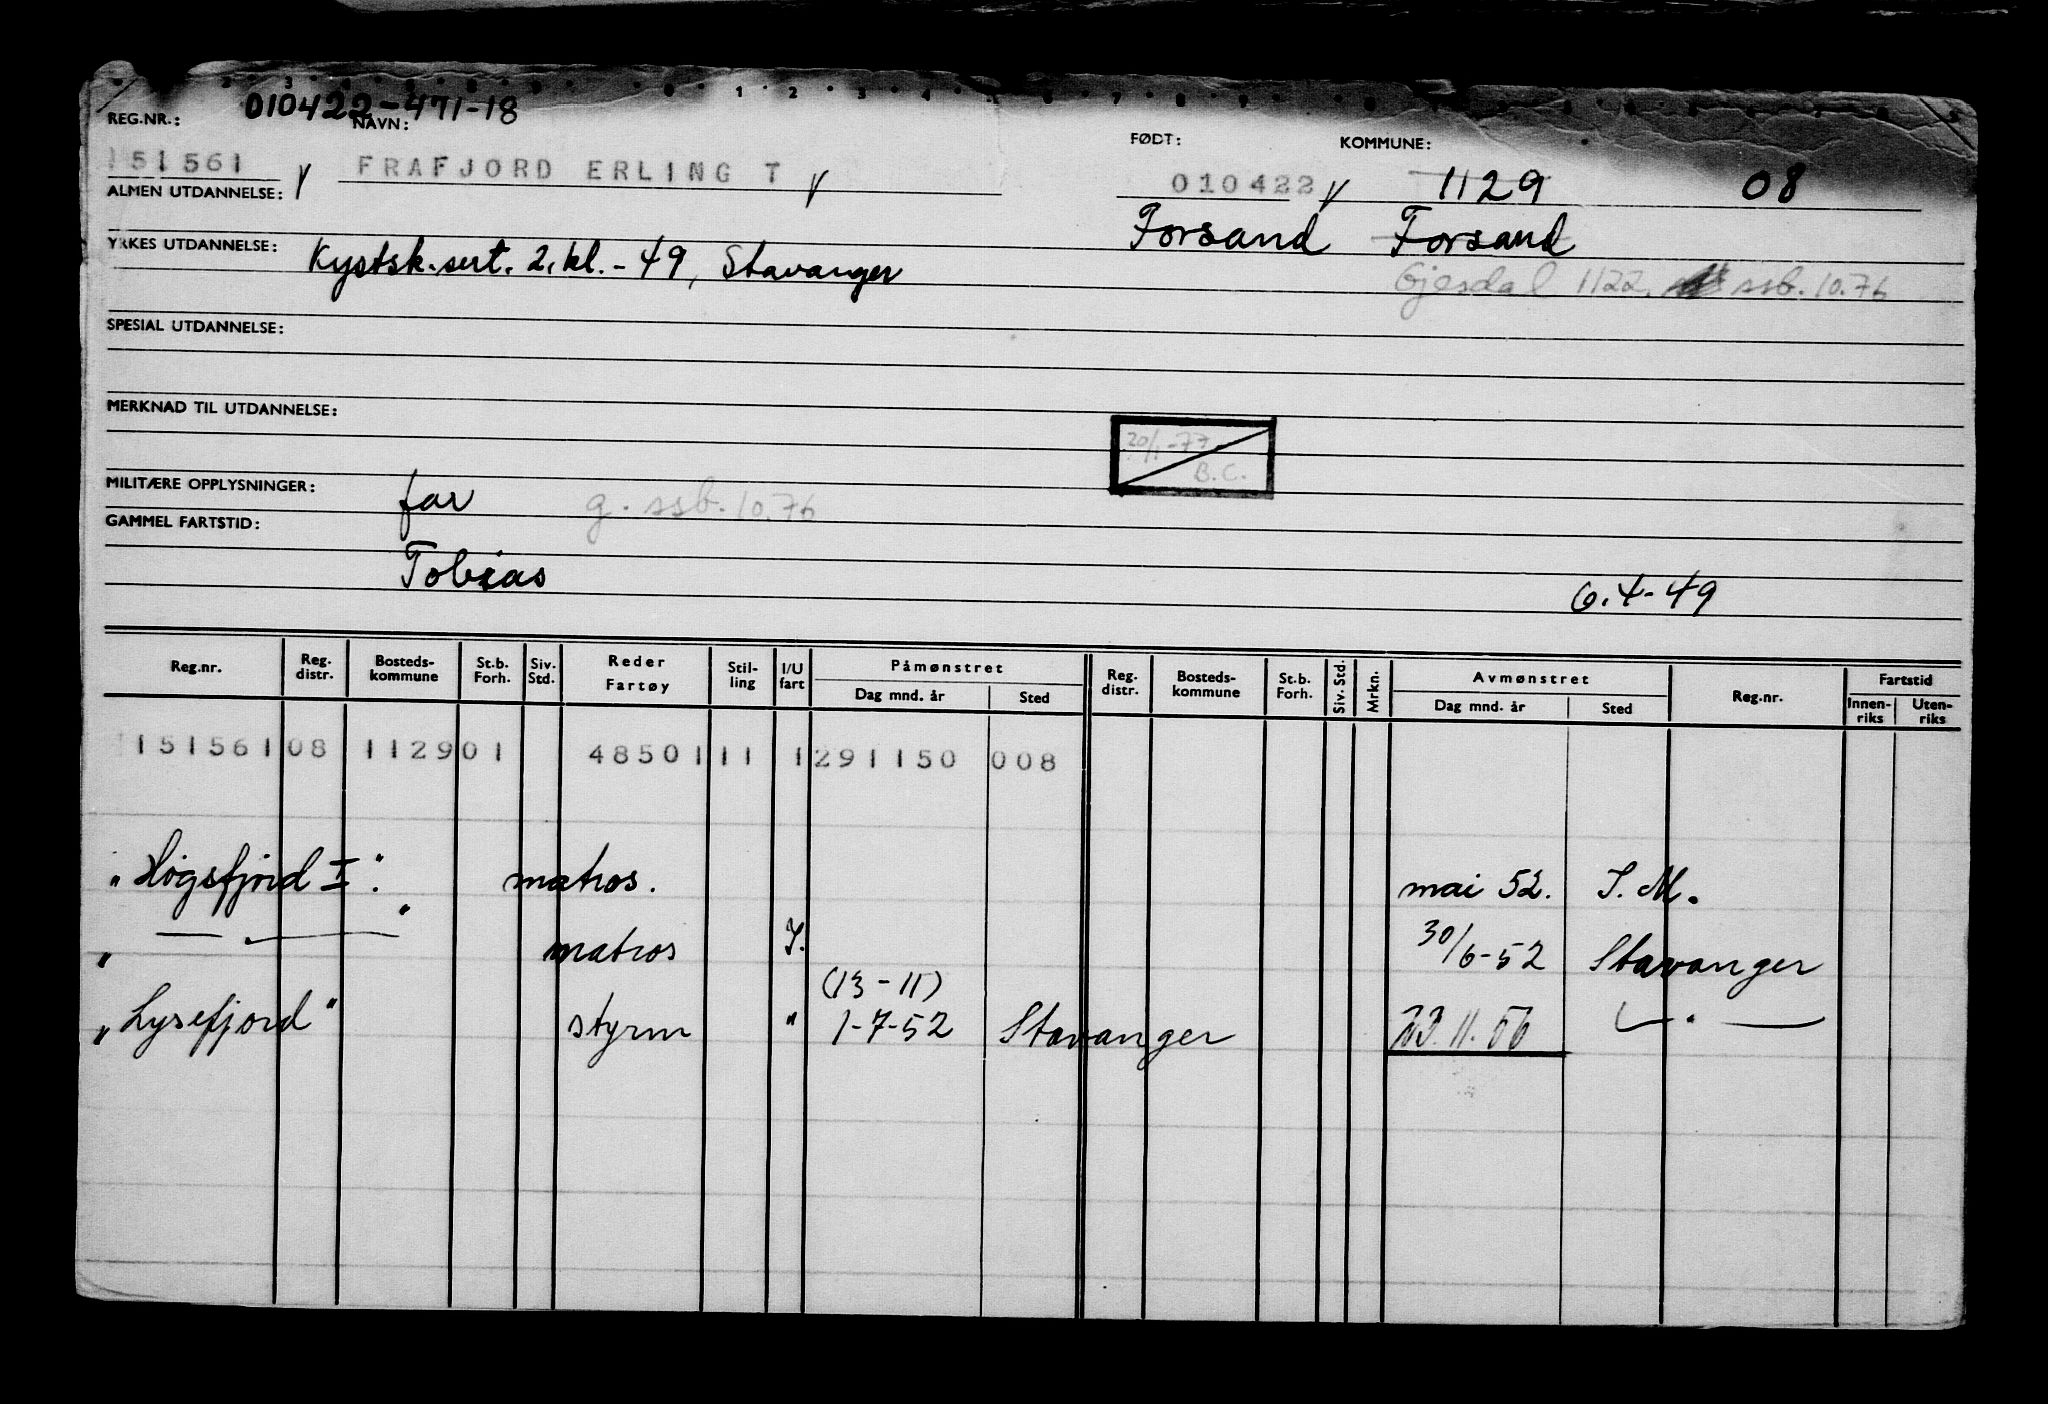 010422-471-18
REG.NR.: NAVN: FØDT: KOMMUNE:
151561 FRAFJORD ERLING T 010422 1129 08
ALMEN UTDANNELSE: Forsand Forsand
YRKES UTDANNELSE: Kystsk.sert. 2.kl.-49, Stavanger
Gjesdal 1122. ssb. 10.76
SPESIAL UTDANNELSE:
MERKNAD TIL UTDANNELSE:
20/1-77
B.C.
MILITÆRE OPPLYSNINGER: far g. ssb. 10.76
GAMMEL FARTSTID:
Tobias
6.4-49
Reg.nr. Reg. distr. Bosteds-kommune St.b. Forh. Siv. Std. Reder Fartøy Stil-ling I/U fart Påmønstret Dag mnd. år Sted Reg. distr. Bosteds-kommune St.b. Forh. Siv. Std. Mrkn. Avmønstret Dag mnd. år Sted Reg.nr. Fartstid Innen-riks Uten-riks
151561 08 1129 01 48501 11 1 291150 008
"Høgsfjord I". matros. mai 52. S.M.
" — " — " matros I. 30/6-52 Stavanger
(13-11)
"Lysefjord" styrm " 1-7-52 Stavanger 23.11.56 — " —